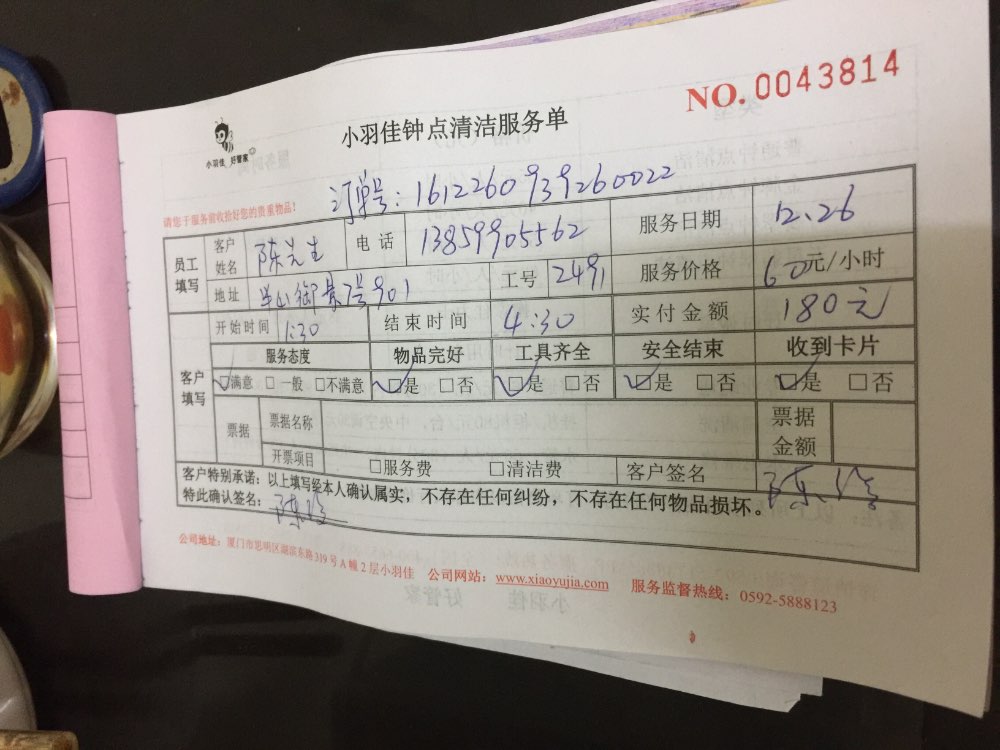 NO. 0043814
小羽佳 好管家
小羽佳钟点清洁服务单
订单号：1612260939260022
请您于服务前收拾好您的贵重物品！
员工填写 客户姓名 陈先生 电话 13859905562 服务日期 12.26
地址 号901 工号 2491 服务价格 60元/小时
客户填写 开始时间 1:30 结束时间 4:30 实付金额 180元
服务态度 物品完好 工具齐全 安全结束 收到卡片
☑满意 □一般 □不满意 ☑是 □否 ☑是 □否 ☑是 □否 ☑是 □否
票据 票据名称 票据金额
开票项目 □服务费 □清洁费 客户签名 陈
客户特别承诺：以上填写经本人确认属实，不存在任何纠纷，不存在任何物品损坏。
特此确认签名：陈
公司地址：厦门市思明区湖滨东路319号A幢2层小羽佳 公司网站：www.xiaoyujia.com 服务监督热线：0592-5888123